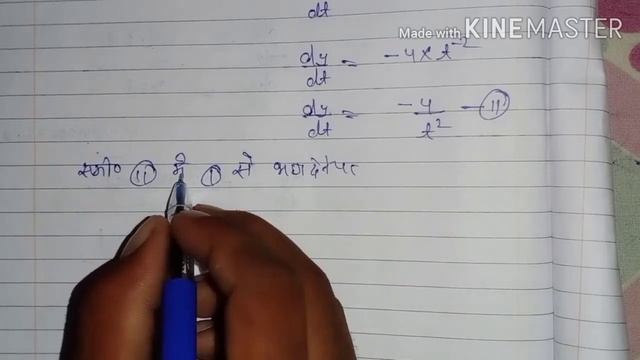 dt
Made with KINEMASTER
dy/dt = -4 × t⁻²
dy/dt = -4/t² — (II)
समी० (II) में (I) से भाग देने पर